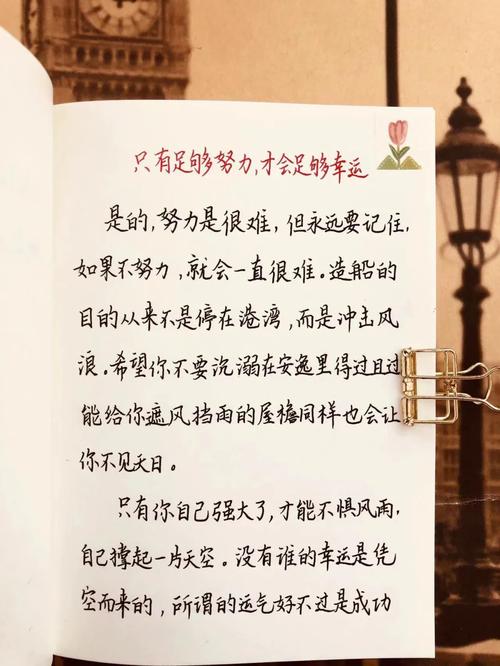 只有足够努力,才会足够幸运
是的,努力是很难,但永远要记住,
如果不努力,就会一直很难。造船的
目的从来不是停在港湾,而是冲击风
浪。希望你不要沉溺在安逸里得过且过
能给你遮风挡雨的屋檐同样也会让
你不见天日。
只有你自己强大了,才能不惧风雨,
自己撑起一片天空。没有谁的幸运是凭
空而来的,所谓的运气好不过是成功